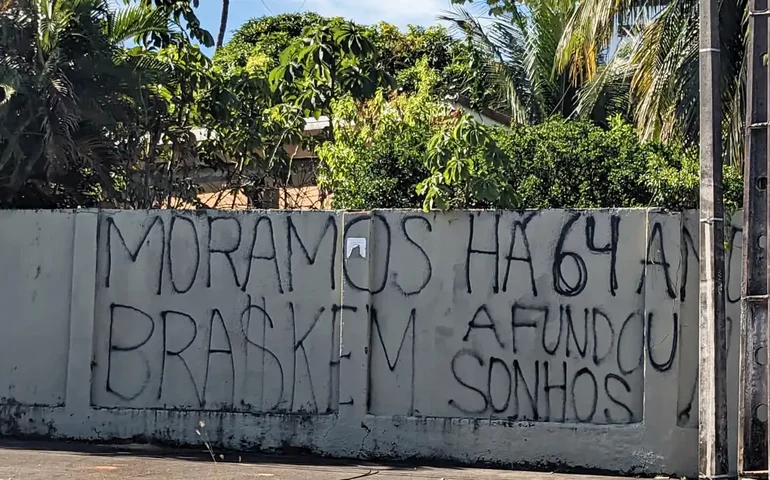 MORAMOS HÁ 64 ANO
BRA$KEM AFUNDOU
SONHOS